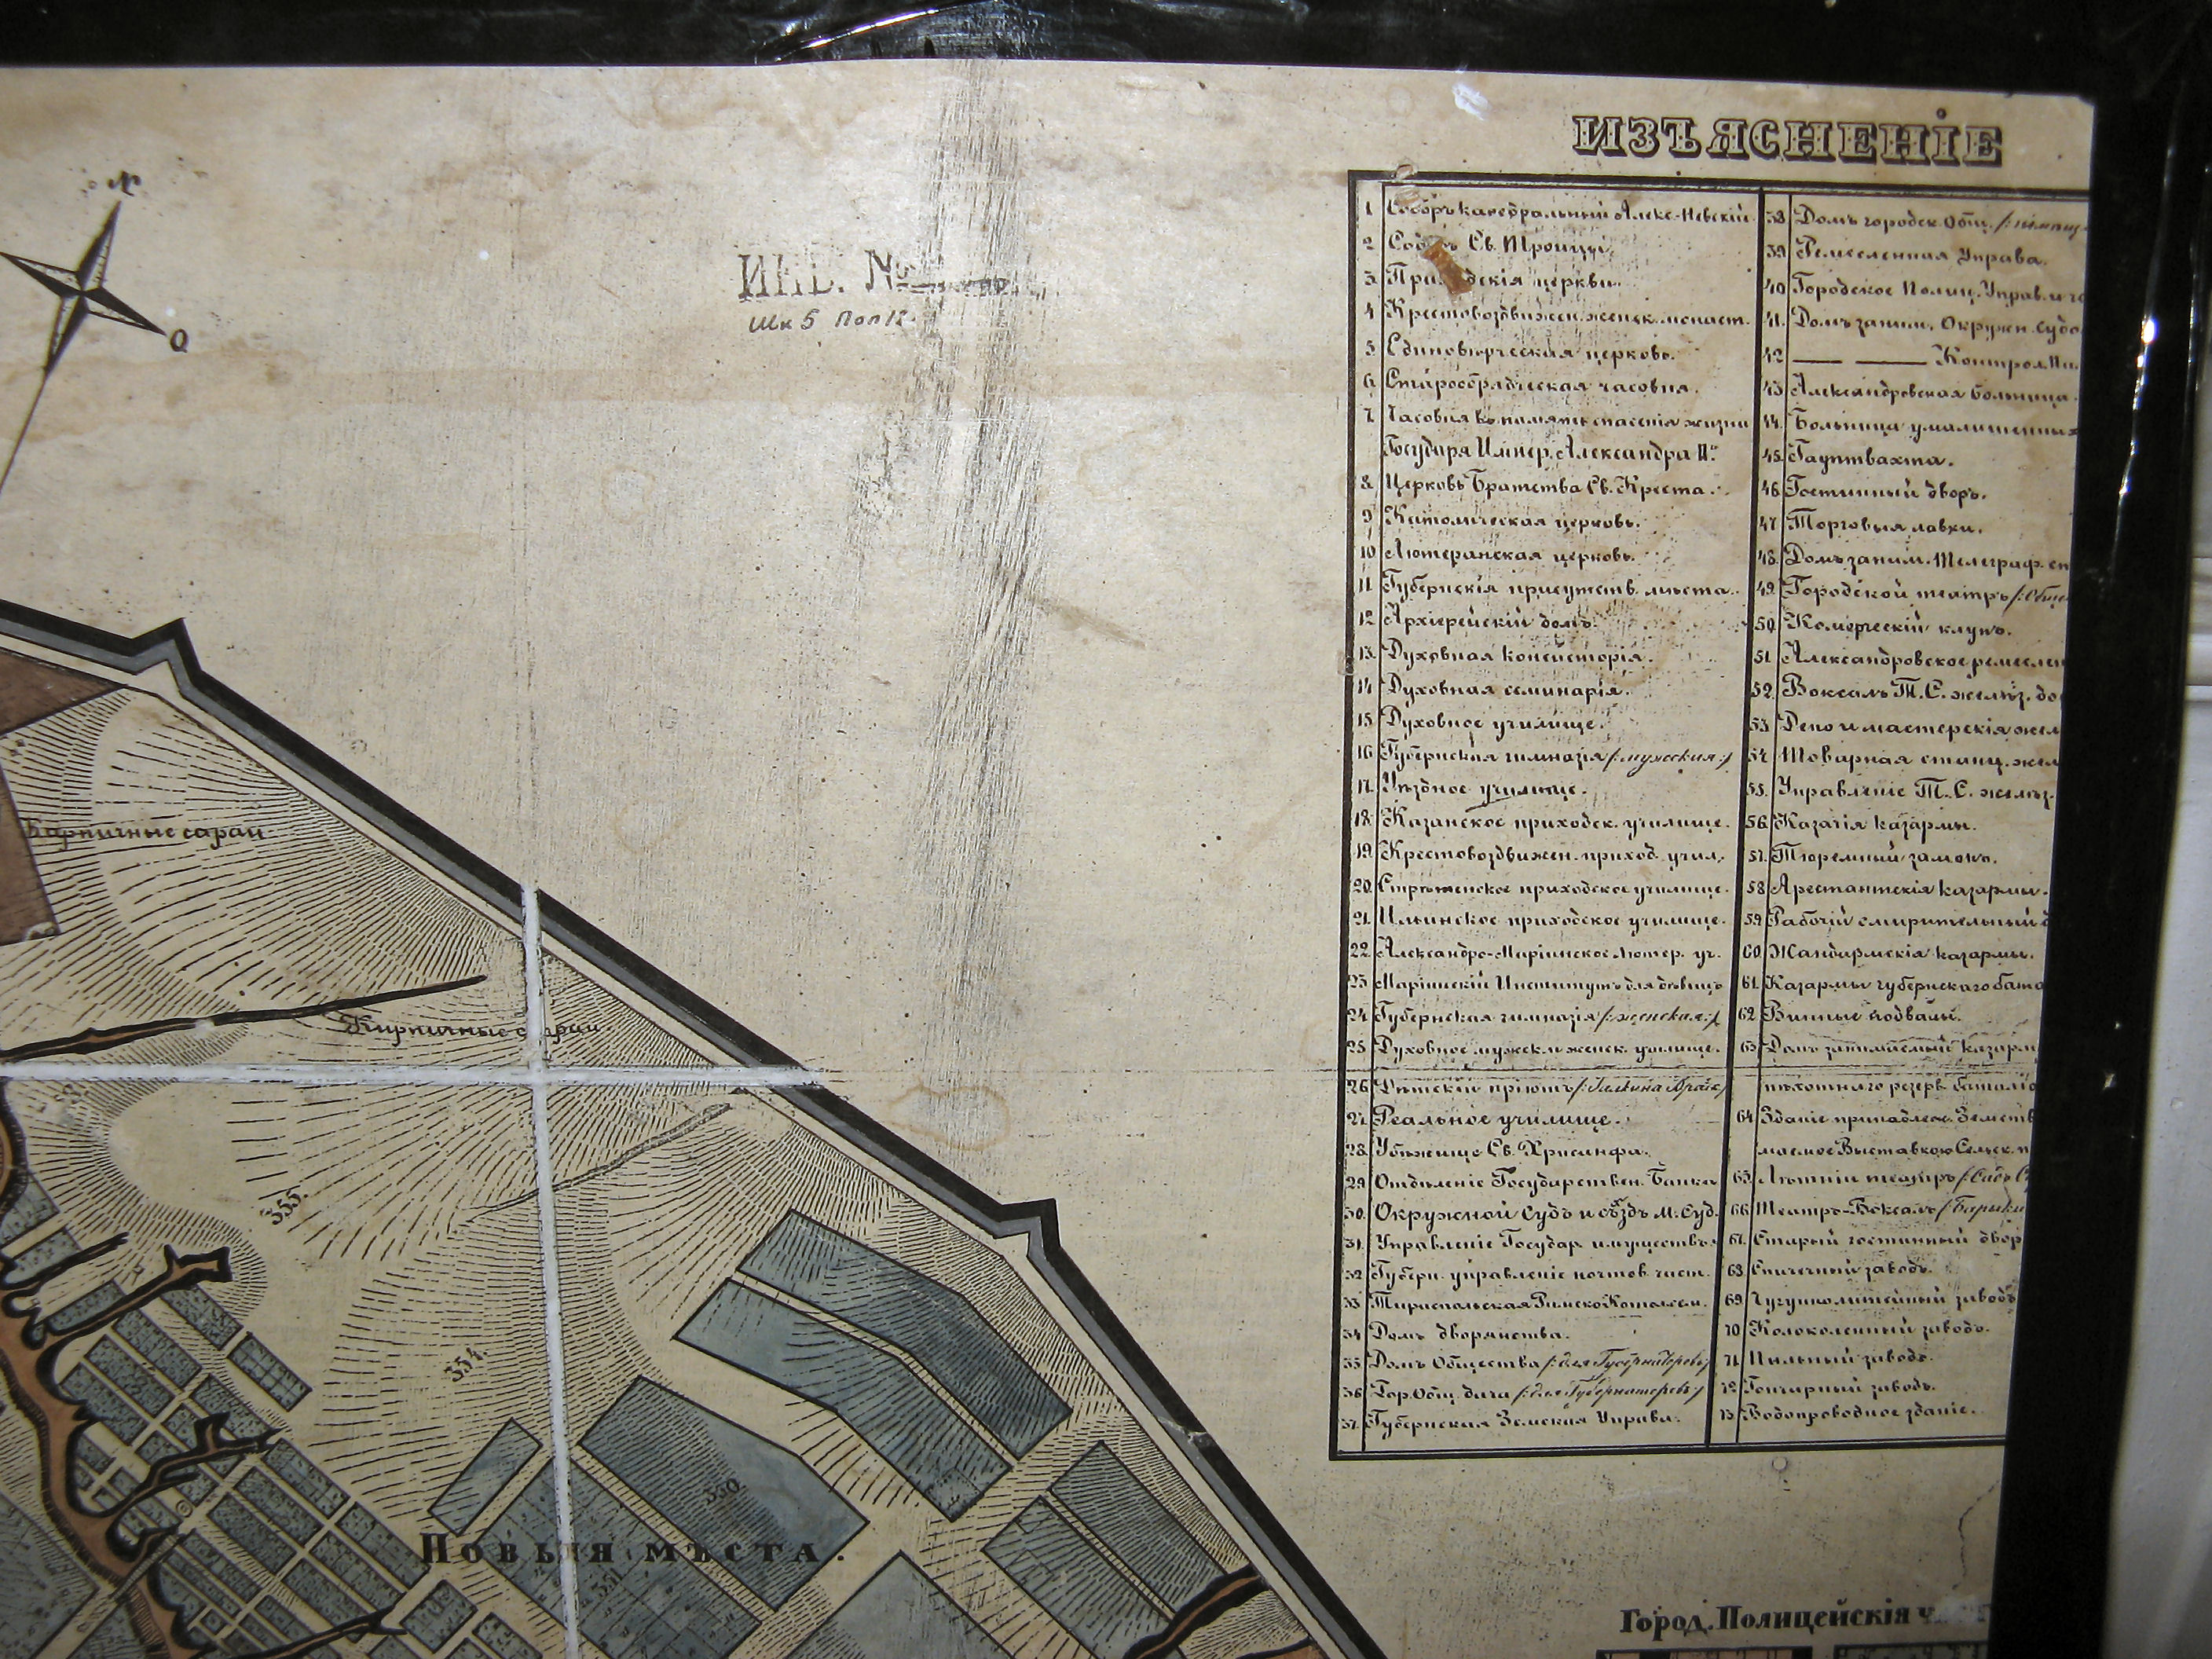 ИЗЪЯСНЕНІЕ
N
O
ИНВ. №
Шк 5 Пол 12.
1 Соборъ каѳедральный Алекс-Невскій.
2 Св. Троицы.
3 церкви.
4 Крестовоздвижен. женск. монаст.
5 Единовѣрческая церковь.
6 Старообрядческая часовня.
7 Часовня въ память спасенія жизни
Государя Импер. Александра IIго
8 Церковь Братства Св. Креста.
9 Католическая церковь.
10 Лютеранская церковь.
11 Губернскія присутств. мѣста.
12 Архіерейскій домъ.
13 Духовная консисторія.
14 Духовная семинарія.
15 Духовное училище.
16 Губернская гимназія /:мужская:/
17 Уѣздное училище.
18 Казанское приходск. училище.
19 Крестовоздвижен. приход. учил.
20 Стрѣтенское приходское училище.
21 Ильинское приходское училище.
22 Александро-Маріинское Лютер. уч.
23 Маріинскій Институтъ для дѣвицъ
24 Губернская гимназія /:женская:/
25 Духовное мужск. и женск. училище.
26 Дѣтскій пріютъ
27 Реальное училище.
28 Убѣжище Св. Хрисанфа.
29 Отдѣленіе Государствен. Банка
30 Окружной Судъ и съѣздъ М. Суд.
31 Управленіе Государ. имуществъ.
32 Губерн. управленіе почтов. част.
33 Тираспольская Римско Католич.
34 Домъ дворянства.
35 Домъ Общества /:для Губернаторовъ:/
36 Гор. Общ. дача /:для Губернаторовъ:/
37 Губернская Земская Управа.
38 Домъ городск. Общ.
39 Ремесленная Управа.
40 Городское Полиц. Управ. и
41 Домъ заним. Окружн. Судо
42 — — Контрол. Па
43 Александровская больница.
44 Больница умалишенныхъ
45 Гауптвахта.
46 Гостинный дворъ.
47 Торговыя лавки.
48 Домъ заним. Телеграф. ст
49 Городской театръ /:Обще
50 Комерческій клубъ.
51 Александровское ремеслен
52 Вокзалъ Т. С. желѣз. до
53 Депо и мастерскія жел
54 Товарная станц. жел
55 Управленіе Т. С. желѣз.
56 Казачія казармы.
57 Тюремный замокъ.
58 Арестантскія казармы.
59 Рабочій смирительный д
60 Жандармскія казармы.
61 Казармы губернскаго бата
62 Винные подвалы.
63 Домъ занимаемый казарм
пѣхотнаго резерв. баталіо
64 Зданіе принадлеж. Земств
маемое Выставкою Сельск.
65 Лѣтній театръ /:Садъ
66 Театръ-Вокзалъ
67 Старый гостинный двор
68 Спичечный заводъ.
69 Чугуннолитейный заводъ
70 Колоколенный заводъ.
71 Пильный заводъ.
72 Гончарный заводъ.
73 Водопроводное зданіе.
Кирпичные сараи
Кирпичные сараи
355.
354.
350.
351
Новыя мѣста.
Город. Полицейскія ч